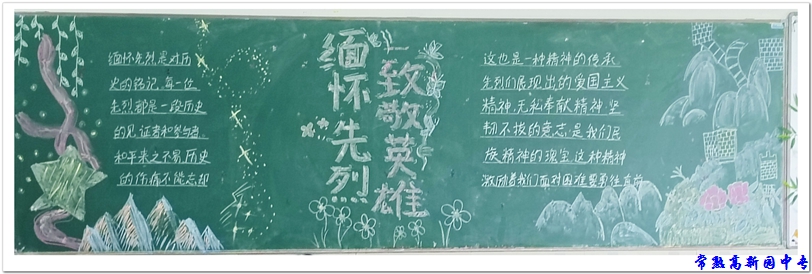 缅怀先烈是对历
史的铭记,每一位
先烈都是一段历史
的见证者和参与者.
和平来之不易,历史
的伤痛不能忘却
缅怀先烈
致敬英雄
这也是一种精神的传承
先烈们展现出的爱国主义
精神、无私奉献精神、坚
韧不拔的意志,是我们民
族精神的瑰宝,这种精神
激励着我们面对困难要勇往直前
常熟高新园中专